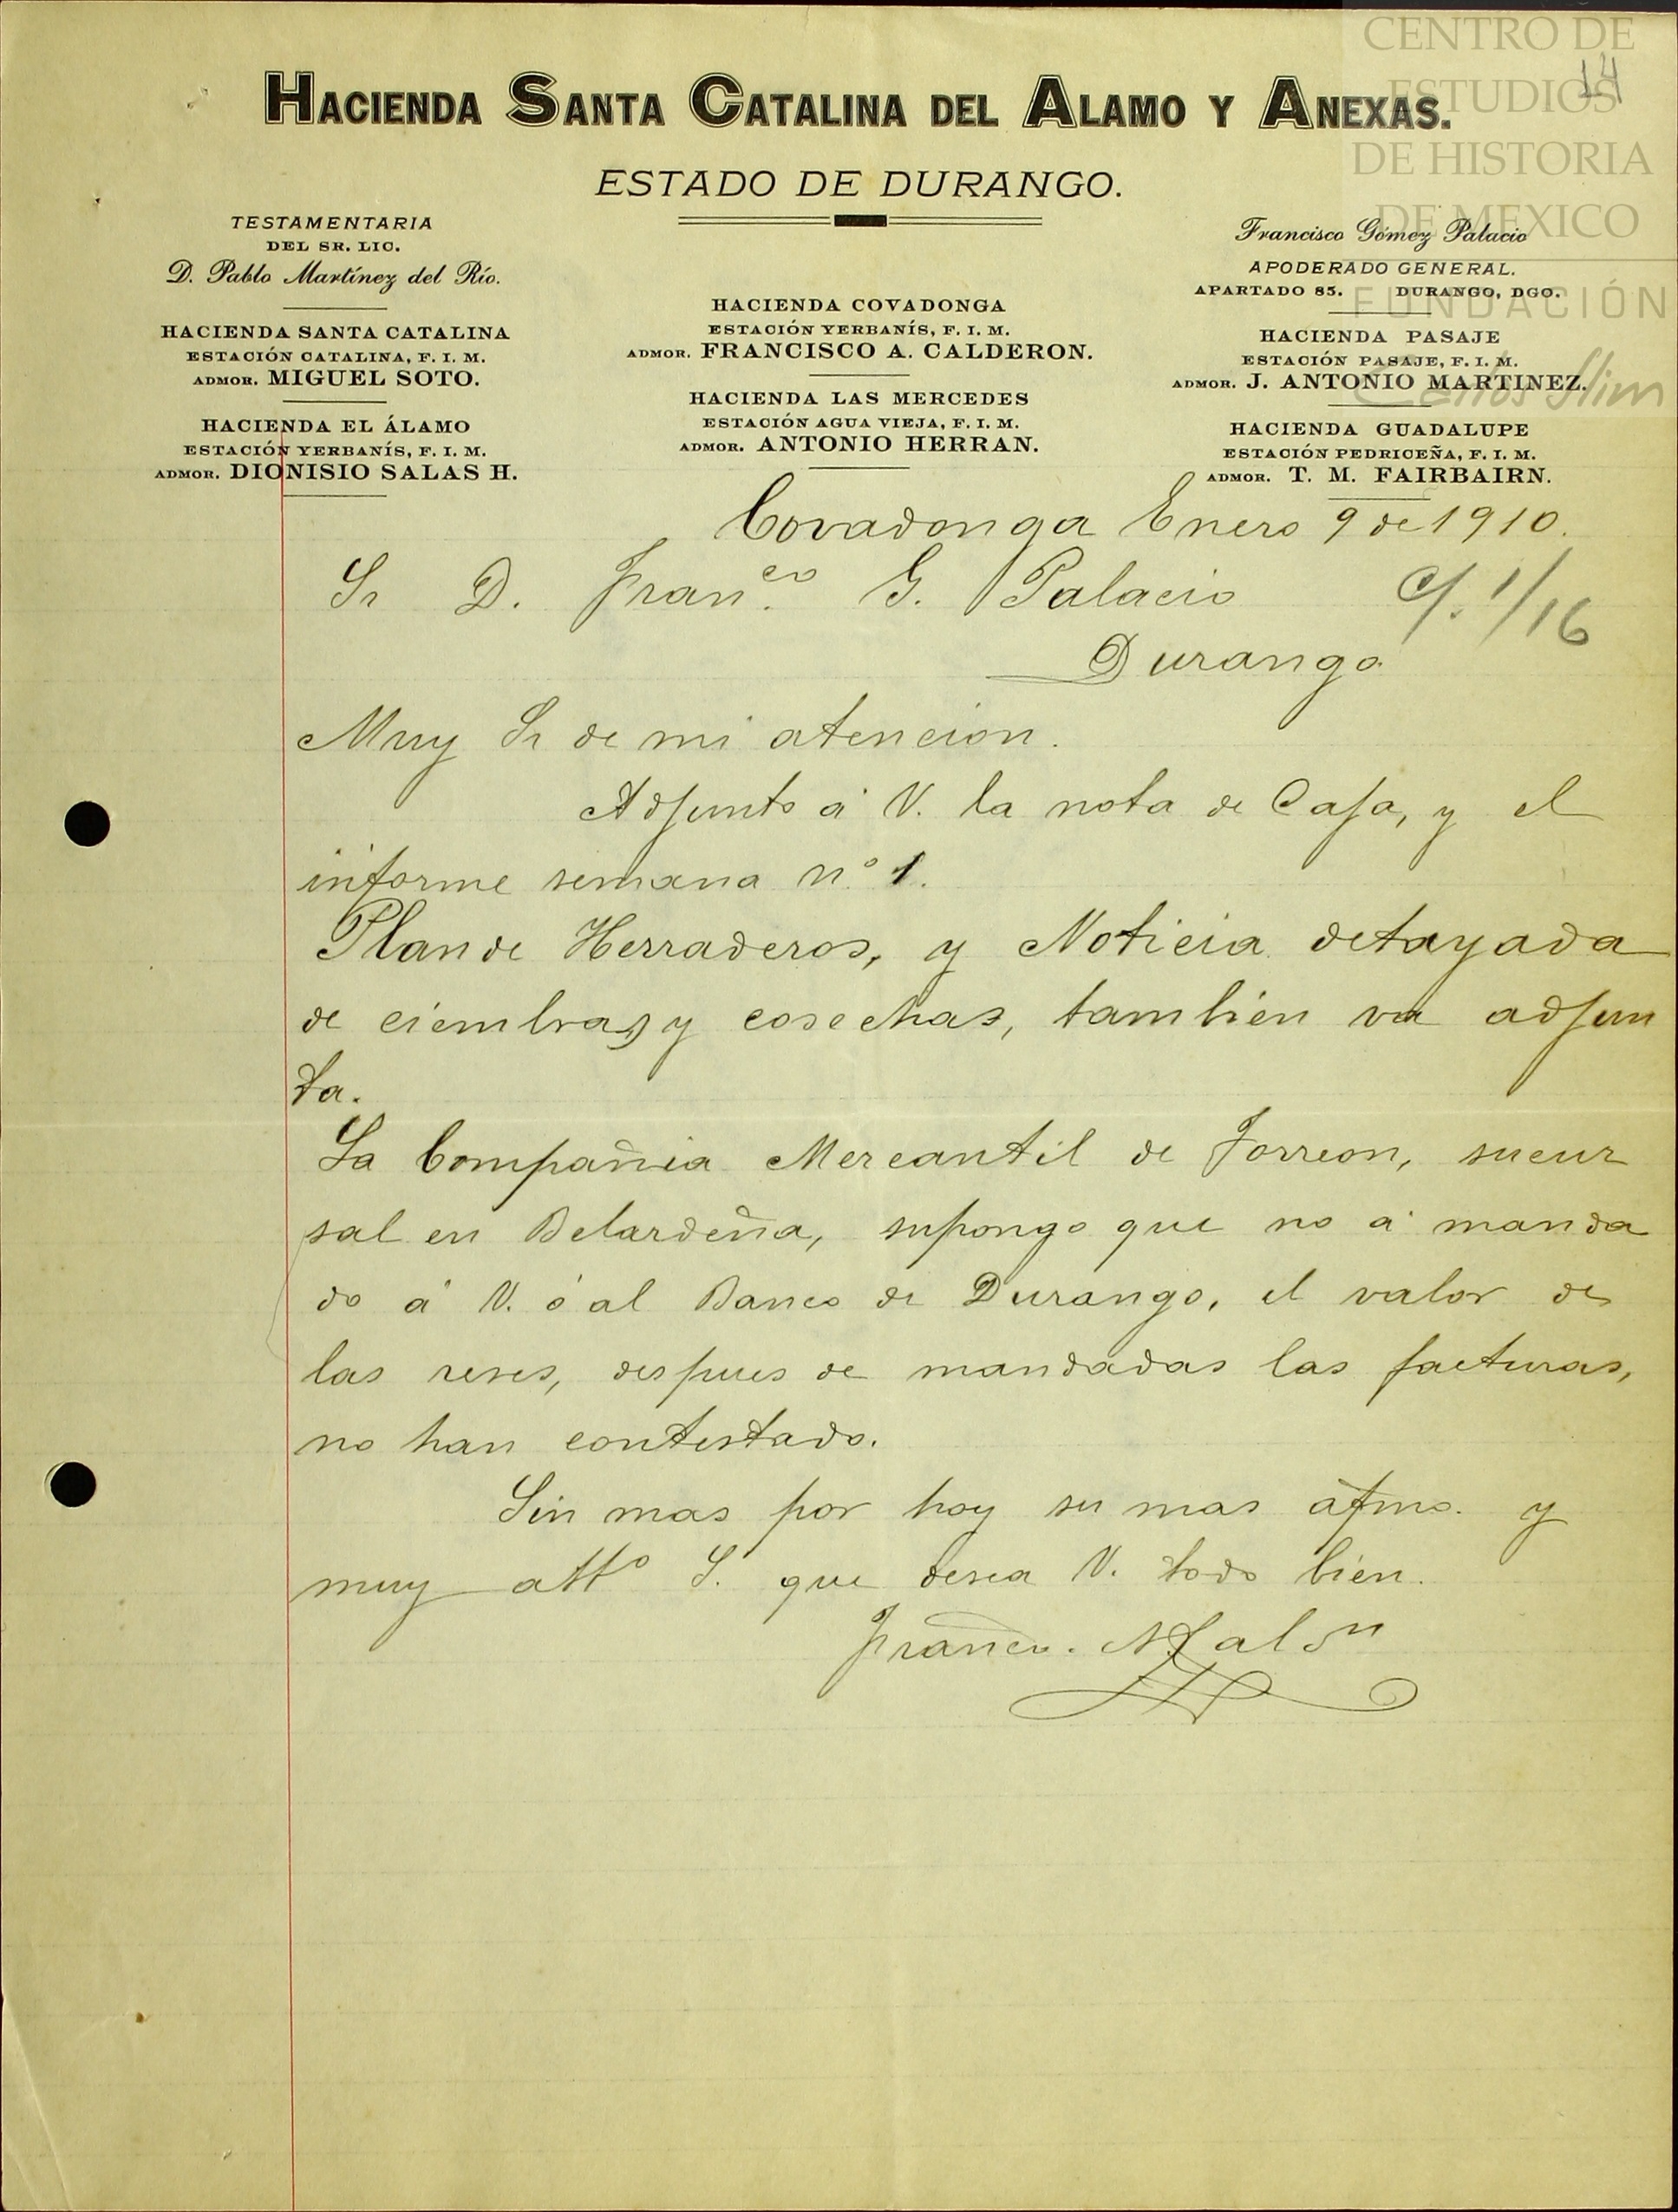 CENTRO DE
ESTUDIOS
DE HISTORIA
DE MEXICO
FUNDACIÓN
Carlos Slim
14
HACIENDA SANTA CATALINA DEL ALAMO Y ANEXAS.
ESTADO DE DURANGO.
TESTAMENTARIA
DEL SR. LIC.
D. Pablo Martínez del Río.
HACIENDA SANTA CATALINA
ESTACIÓN CATALINA, F. I. M.
ADMOR. MIGUEL SOTO.
HACIENDA EL ÁLAMO
ESTACIÓN YERBANÍS, F. I. M.
ADMOR. DIONISIO SALAS H.
HACIENDA COVADONGA
ESTACIÓN YERBANÍS, F. I. M.
ADMOR. FRANCISCO A. CALDERON.
HACIENDA LAS MERCEDES
ESTACIÓN AGUA VIEJA, F. I. M.
ADMOR. ANTONIO HERRAN.
Francisco Gómez Palacio
APODERADO GENERAL.
APARTADO 85. DURANGO, DGO.
HACIENDA PASAJE
ESTACIÓN PASAJE, F. I. M.
ADMOR. J. ANTONIO MARTINEZ.
HACIENDA GUADALUPE
ESTACIÓN PEDRICEÑA, F. I. M.
ADMOR. T. M. FAIRBAIRN.
Covadonga Enero 9 de 1910.
Sr D. Fran.co G. Palacio
C/. 1/16
Durango
Muy Sr de mi atencion.
Adjunto á V. la nota de Caja, y el
informe semana n.º 1.
Plan de Herraderos, y Noticia detayada
de ciembras y cosechas, tambien va adjun
ta.
La Compañia Mercantil de Torreon, sucur
sal en Belardeña, supongo que no á manda
do á V. ó al Banco de Durango, el valor de
las reses, despues de mandadas las facturas,
no han contestado.
Sin mas por hoy su mas afmo. y
muy atto S. que desea V. todo bien.
Franco. A. Calon